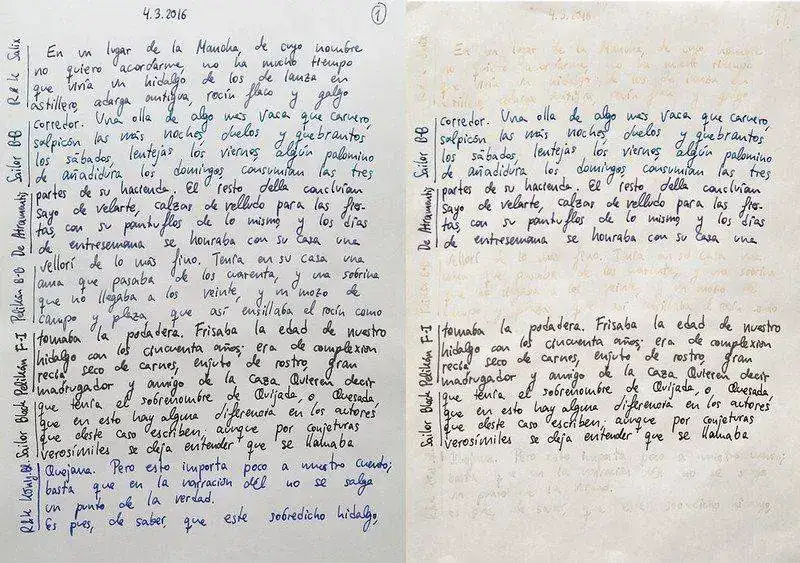 4.3.2016
1
R&K Salix
En un lugar de la Mancha, de cuyo nombre
no quiero acordarme, no ha mucho tiempo
que vivía un hidalgo de los de lanza en
astillero, adarga antigua, rocín flaco y galgo
Sailor B-B
corredor. Una olla de algo más vaca que carnero,
salpicón las más noches, duelos y quebrantos
los sábados, lentejas los viernes, algún palomino
de añadidura los domingos consumían las tres
De Atramentis
partes de su hacienda. El resto della concluían
sayo de velarte, calzas de velludo para las fies-
tas, con su pantuflos de lo mismo, y los días
de entresemana se honraba con su casa una
Pelikan B-B
vellorí de lo más fino. Tenía en su casa una
ama que pasaba de los cuarenta, y una sobrina
que no llegaba a los veinte, y un mozo de
campo y plaza que así ensillaba el rocín como
Pelikán F-I
tomaba la podadera. Frisaba la edad de nuestro
hidalgo con los cincuenta años; era de complexion
recia seco de carnes, enjuto de rostro, gran
madrugador y amigo de la caza Quieren decir
Sailor Black
que tenía el sobrenombre de Quijada, o, Quesada,
que en esto hay alguna diferencia en los autores
que deste caso escriben, aunque por conjeturas
verosímiles se deja entender que se llamaba
Quejana. Pero esto importa poco a nuestro cuento;
basta que en la narración dél no se salga
un punto de la verdad.
Es pues, de saber, que este sobredicho hidalgo,
4.3.2016
En un lugar de la Mancha, de cuyo nombre
no quiero acordarme, no ha mucho tiempo
que vivía un hidalgo de los de lanza en
Sailor B-B
corredor. Una olla de algo más vaca que carnero,
salpicón las más noches, duelos y quebrantos
los sábados, lentejas los viernes, algún palomino
de añadidura los domingos consumían las tres
De Atramentis
partes de su hacienda. El resto della concluían
sayo de velarte, calzas de velludo para las fies-
tas, con su pantuflos de lo mismo, y los días
de entresemana se honraba con su casa una
Pelikán F-I
tomaba la podadera. Frisaba la edad de nuestro
hidalgo con los cincuenta años; era de complexion
recia seco de carnes, enjuto de rostro, gran
madrugador y amigo de la caza Quieren decir
Sailor Black
que tenía el sobrenombre de Quijada, o, Quesada,
que en esto hay alguna diferencia en los autores
que deste caso escriben, aunque por conjeturas
verosímiles se deja entender que se llamaba